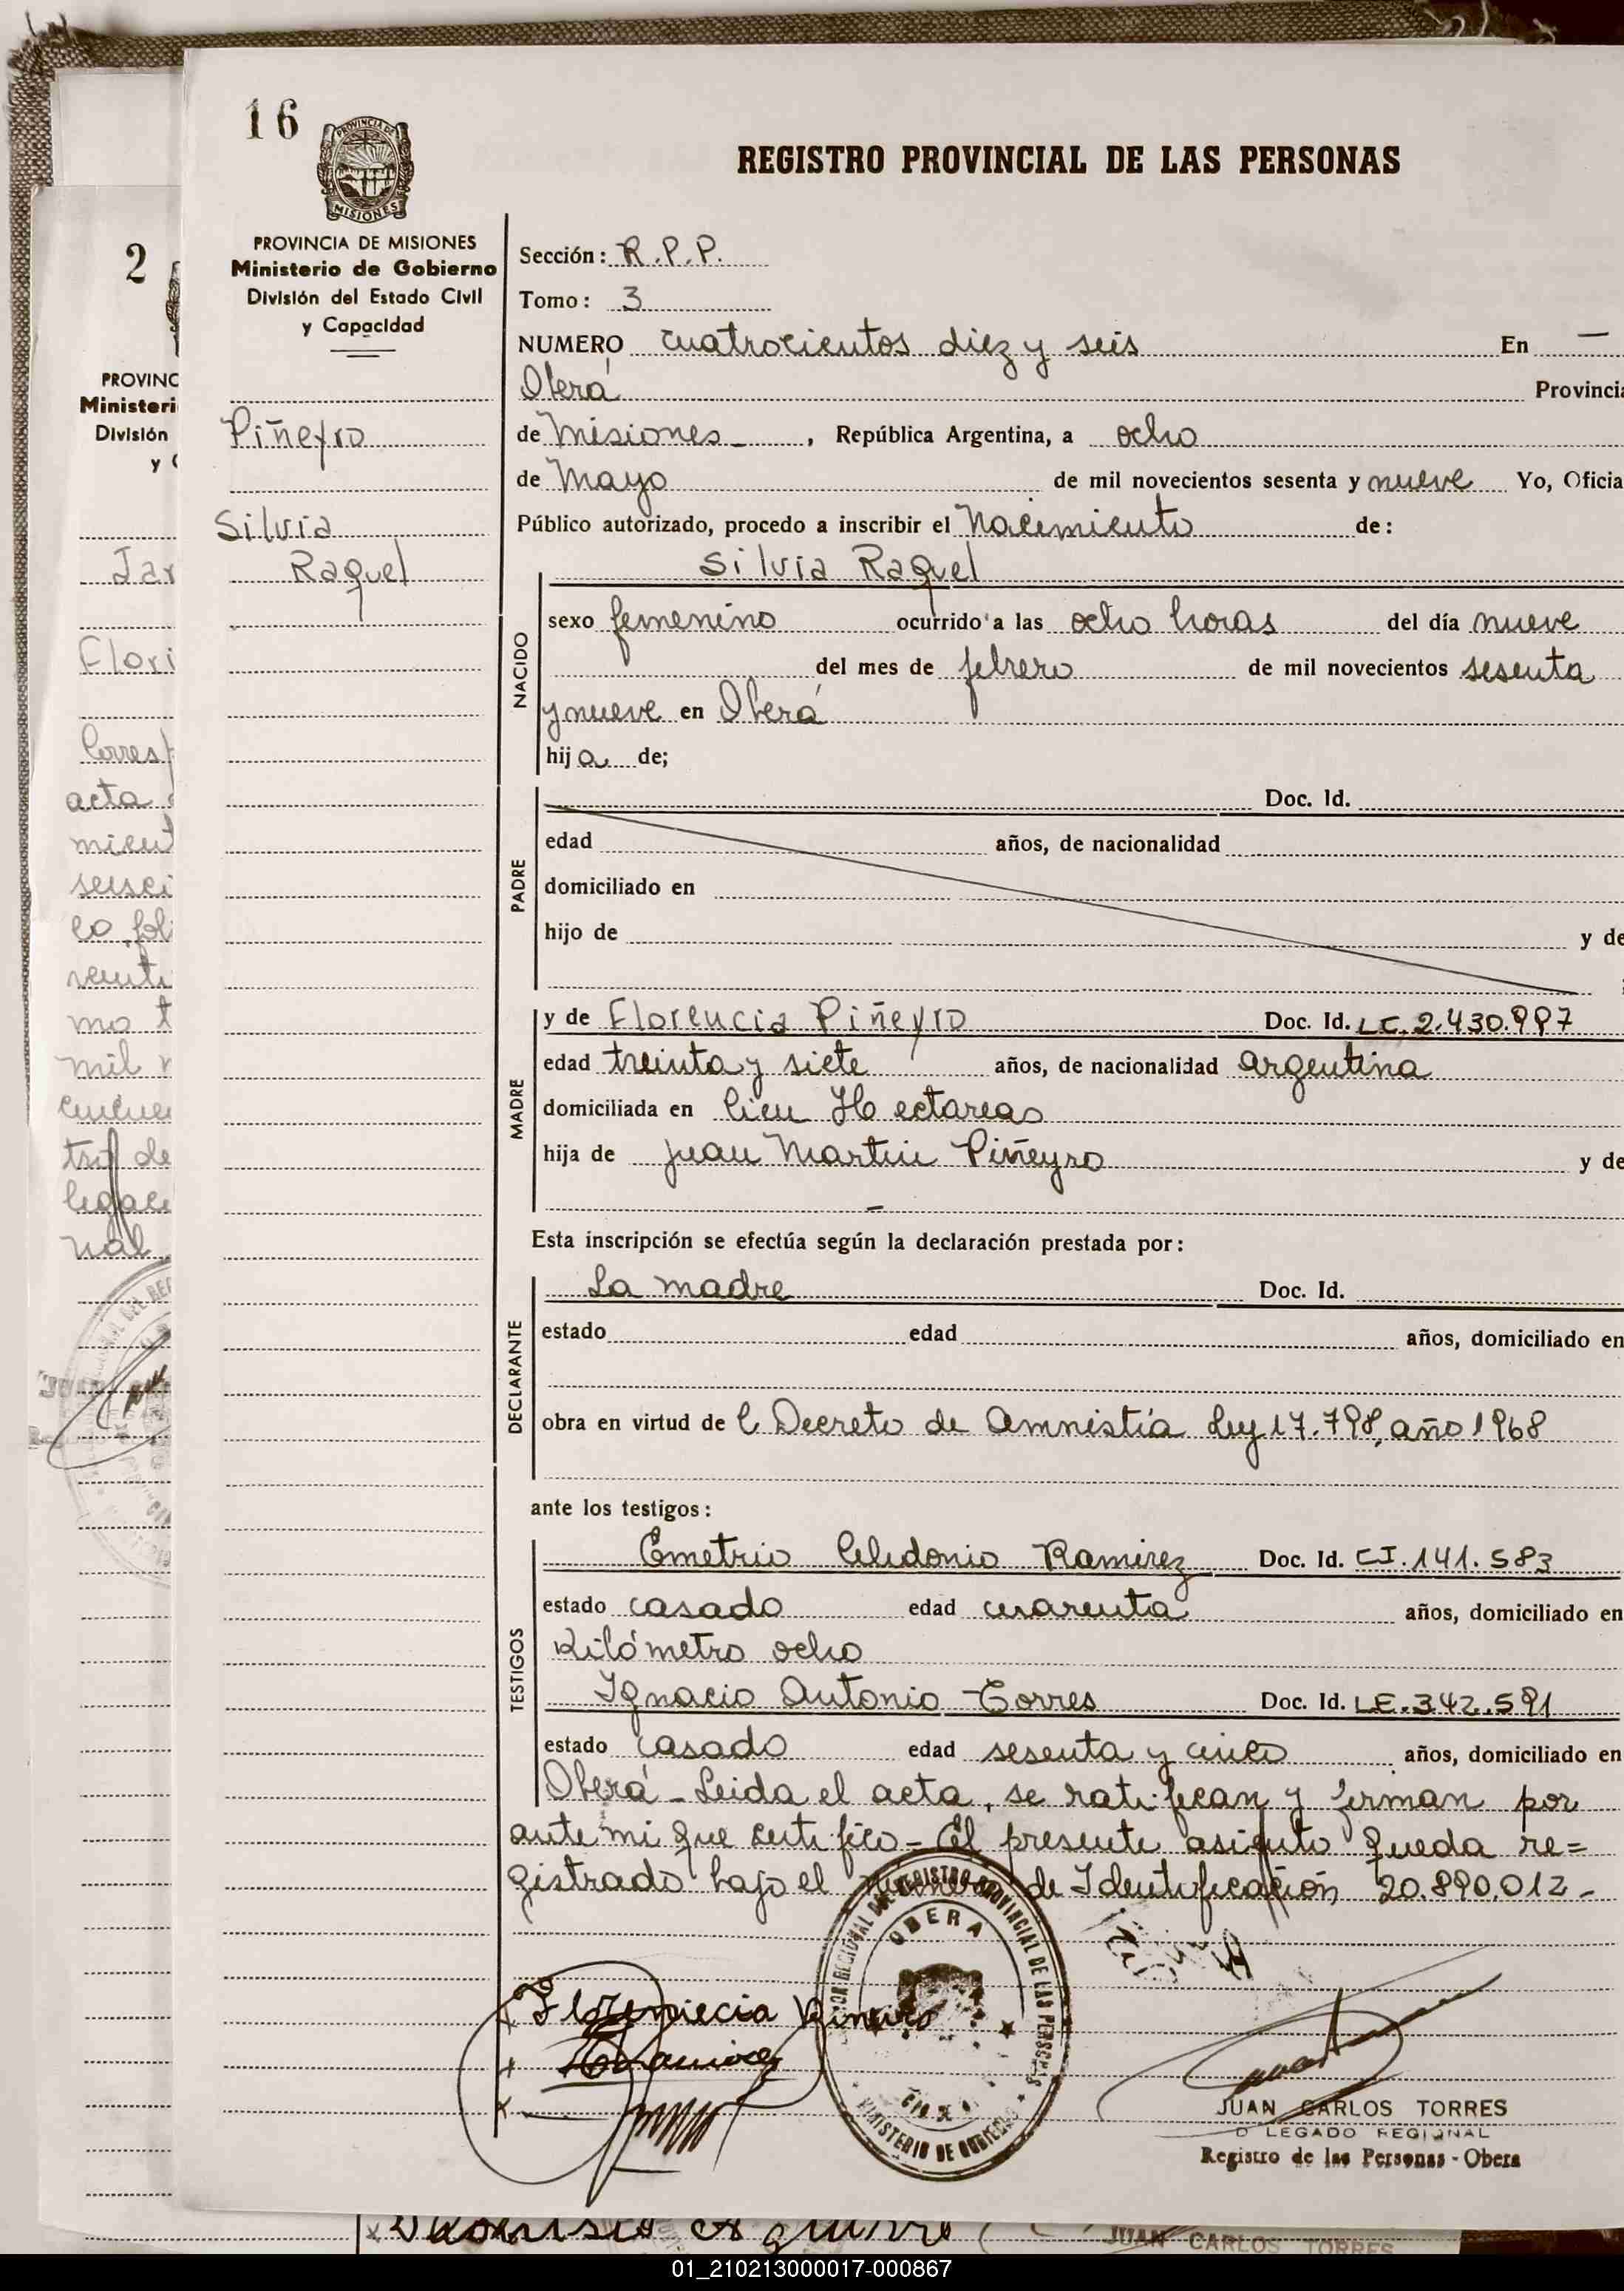 16
PROVINCIA DE
MISIONES
REGISTRO PROVINCIAL DE LAS PERSONAS
PROVINCIA DE MISIONES
Ministerio de Gobierno
División del Estado Civil
y Capacidad
Piñeyro
Silvia
Raquel
Sección: R.P.P.
Tomo: 3
NUMERO cuatrocientos diez y seis En —
Oberá Provincia
de Misiones , República Argentina, a ocho
de Mayo de mil novecientos sesenta y nueve Yo, Oficia
Público autorizado, procedo a inscribir el Nacimiento de:
NACIDO
Silvia Raquel
sexo femenino ocurrido a las ocho horas del día nueve
del mes de febrero de mil novecientos sesenta
y nueve en Oberá
hija de;
PADRE
Doc. Id.
edad años, de nacionalidad
domiciliado en
hijo de y de
MADRE
y de Florencia Piñeyro Doc. Id. LC. 2.430.997
edad treinta y siete años, de nacionalidad argentina
domiciliada en Cien Hectareas
hija de Juan Martin Piñeyro y de
—
Esta inscripción se efectúa según la declaración prestada por:
DECLARANTE
La madre Doc. Id.
estado edad años, domiciliado en
obra en virtud de l Decreto de Amnistía Ley 17.798, año 1968
ante los testigos:
TESTIGOS
Emetrio Celidonio Ramirez Doc. Id. CI. 141.583
estado casado edad cuarenta años, domiciliado en
Kilómetro ocho
Ignacio Antonio Torres Doc. Id. LE. 342.591
estado casado edad sesenta y cinco años, domiciliado en
Oberá - Leida el acta, se ratifican y firman por
ante mi que certifico - El presente asiento queda re=
gistrado bajo el número de Identificación 20.890.012 -
REGISTRO PROVINCIAL DE LAS PERSONAS
OBERA
MINISTERIO DE GOBIERNO
JUAN CARLOS TORRES
D LEGADO REGIONAL
Registro de las Personas - Obera
2
PROVINC
Ministeri
División
y C
Jar
Flori
Corresp
acta
mient
seisci
co foli
veinti
mo t
mil n
cincuen
de
legaci
nal
JUAN CARLOS TORRES
01_210213000017-000867